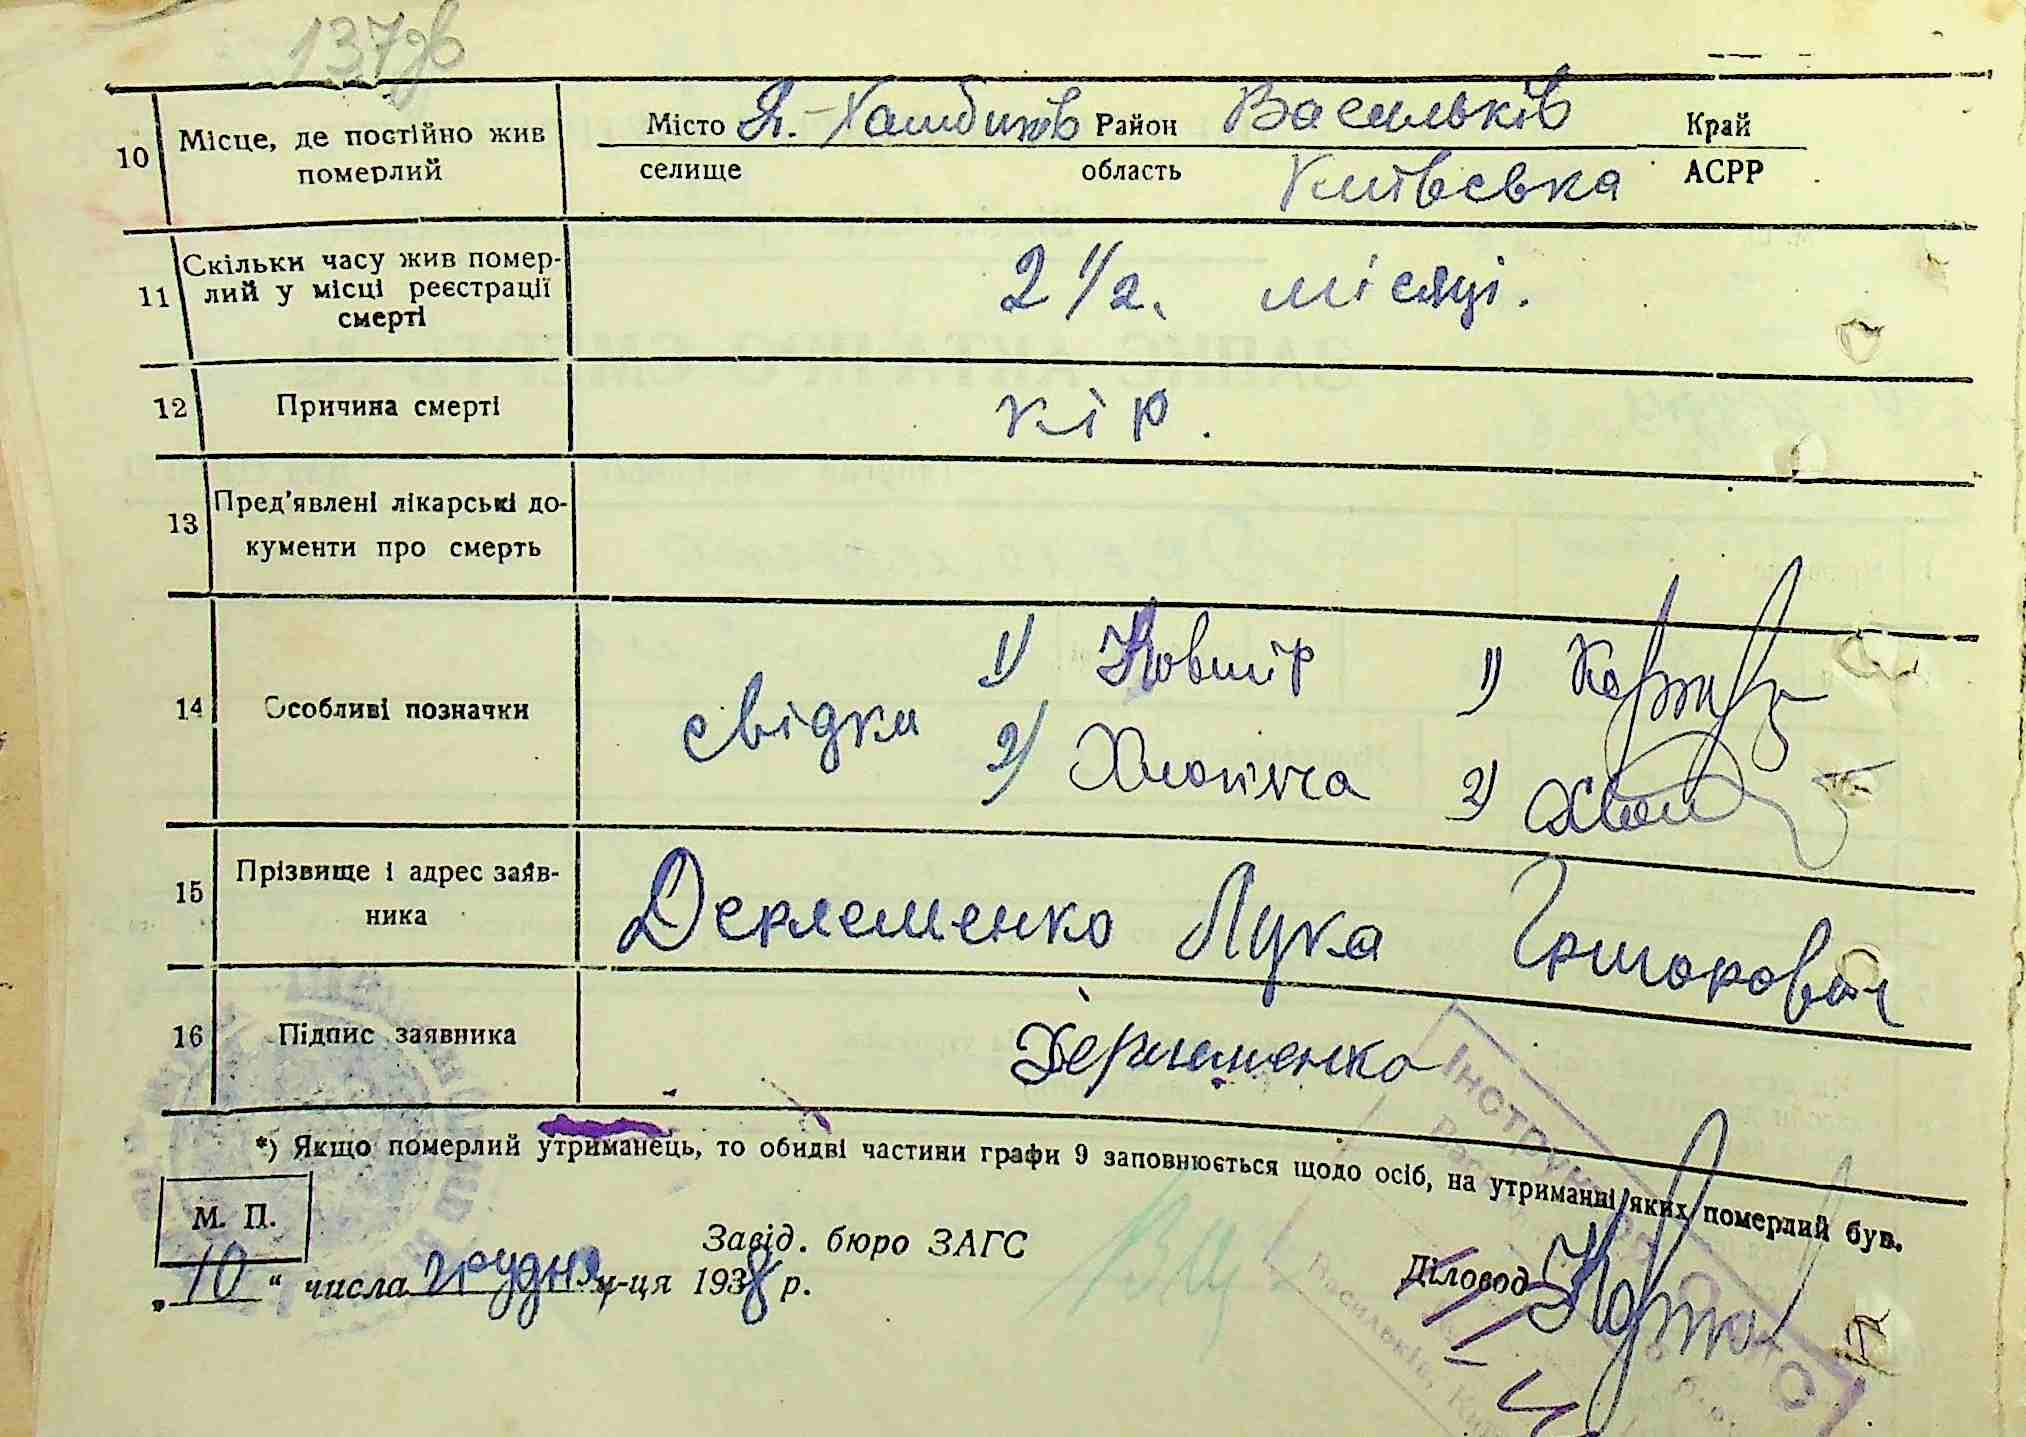 137зв
Місто Я.-Хамбиків Район Васильків Край
10 Місце, де постійно жив
померлий
селище область Київська АСРР
11 Скільки часу жив помер-
лий у місці реєстрації
смерті
2 1/2. місяці.
12 Причина смерті кір.
13 Пред'явлені лікарські до-
кументи про смерть
14 Особливі позначки свідки
1) Ковшір 1)
2) 2)
15 Прізвище і адрес заяв-
ника
Дерлеменко Лука Григорович
16 Підпис заявника Дерлеменко
*) Якщо померлий утриманець, то обидві частини графи 9 заповнюється щодо осіб, на утриманні яких померлий був.
М. П.
Завід. бюро ЗАГС
Діловод
„10“ числа грудня м-ця 1938 р.